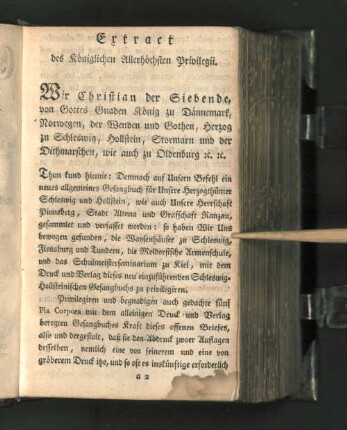 Extract
des Königlichen Allerhöchsten Privilegii.
Wir Christian der Siebende,
von Gottes Gnaden König zu Dännemark,
Norwegen, der Wenden und Gothen, Herzog
zu Schleswig, Hollstein, Stormarn und der
Dithmarschen, wie auch zu Oldenburg ꝛc. ꝛc.
Thun kund hiemit: Demnach auf Unsern Befehl ein
neues allgemeines Gesangbuch für Unsere Herzogthümer
Schleswig und Hollstein, wie auch Unsere Herrschaft
Pinneberg, Stadt Altona und Grafschaft Ranzau,
gesammlet und verfasset worden: so haben Wir Uns
bewogen gefunden, die Waysenhäuser zu Schleswig,
Flensburg und Tundern, die Meldorfische Armenschule,
und das Schulmeisterseminarium zu Kiel, mit dem
Druck und Verlag dieses neu einzuführenden Schleswig-
Hollsteinischen Gesangbuchs zu privilegiren.
Privilegiren und begnadigen auch gedachte fünf
Pia Corpora mit dem alleinigen Druck und Verlag
beregten Gesangbuches Kraft dieses offenen Briefes,
also und dergestalt, daß sie den Abdruck zwoer Auflagen
desselben, nemlich eine von feinerem und eine von
gröberem Druck itzo, und so oft es inskünftige erforderlich
a 2